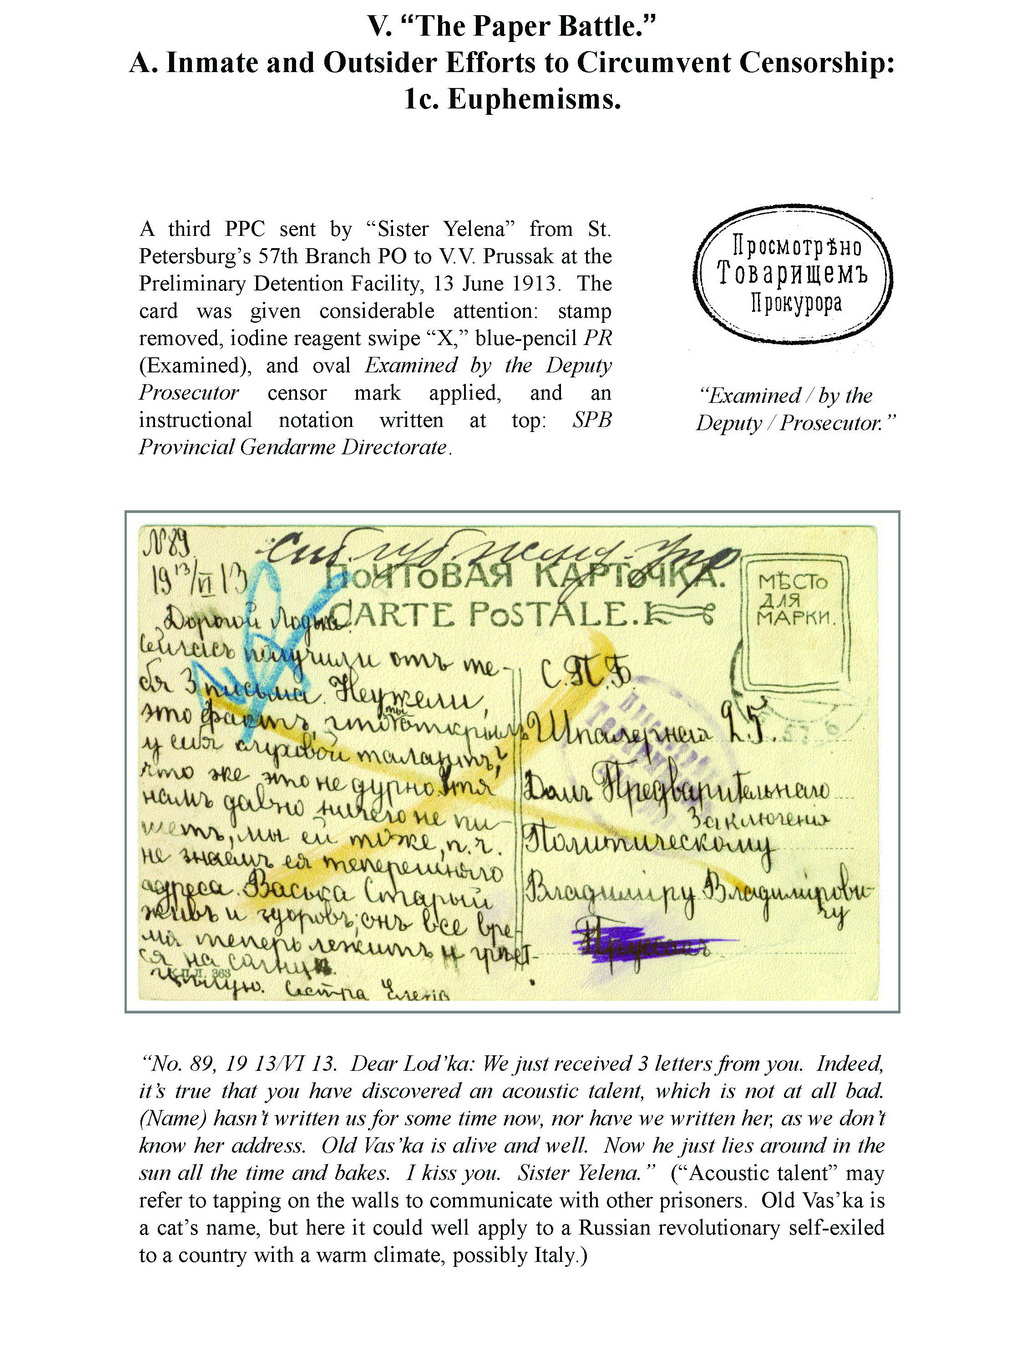 V. “The Paper Battle.”
A. Inmate and Outsider Efforts to Circumvent Censorship:
1c. Euphemisms.
A third PPC sent by “Sister Yelena” from St.
Petersburg’s 57th Branch PO to V.V. Prussak at the
Preliminary Detention Facility, 13 June 1913. The
card was given considerable attention: stamp
removed, iodine reagent swipe “X,” blue-pencil PR
(Examined), and oval Examined by the Deputy
Prosecutor censor mark applied, and an
instructional notation written at top: SPB
Provincial Gendarme Directorate.
Просмотрѣно
Товарищемъ
Прокурора
“Examined / by the
Deputy / Prosecutor.”
№ 89
19 13/VI 13
ПОЧТОВАЯ КАРТОЧКА.
CARTE POSTALE.
МѢСТО
ДЛЯ
МАРКИ.
Дорогой Лодька.
Сейчасъ получили отъ те-
бя 3 письма. Неужели,
это фактъ, что ты открылъ
у себя слуховой талантъ,
что же это не дурно.
намъ давно ничего не пи-
шетъ, мы ей тоже, п.ч.
не знаемъ ея теперешняго
адреса. Васька Старый
живъ и здоровъ; онъ все вре-
мя теперь лежитъ и грѣет-
ся на солнцѣ.
Цѣлую. Сестра Елена
363
С.П.Б.
Шпалерная 25.
Домъ Предварительнаго
Заключенія
Политическому
Владиміру Владимірови-
чу
“No. 89, 19 13/VI 13. Dear Lod’ka: We just received 3 letters from you. Indeed,
it’s true that you have discovered an acoustic talent, which is not at all bad.
(Name) hasn’t written us for some time now, nor have we written her, as we don’t
know her address. Old Vas’ka is alive and well. Now he just lies around in the
sun all the time and bakes. I kiss you. Sister Yelena.” (“Acoustic talent” may
refer to tapping on the walls to communicate with other prisoners. Old Vas’ka is
a cat’s name, but here it could well apply to a Russian revolutionary self-exiled
to a country with a warm climate, possibly Italy.)